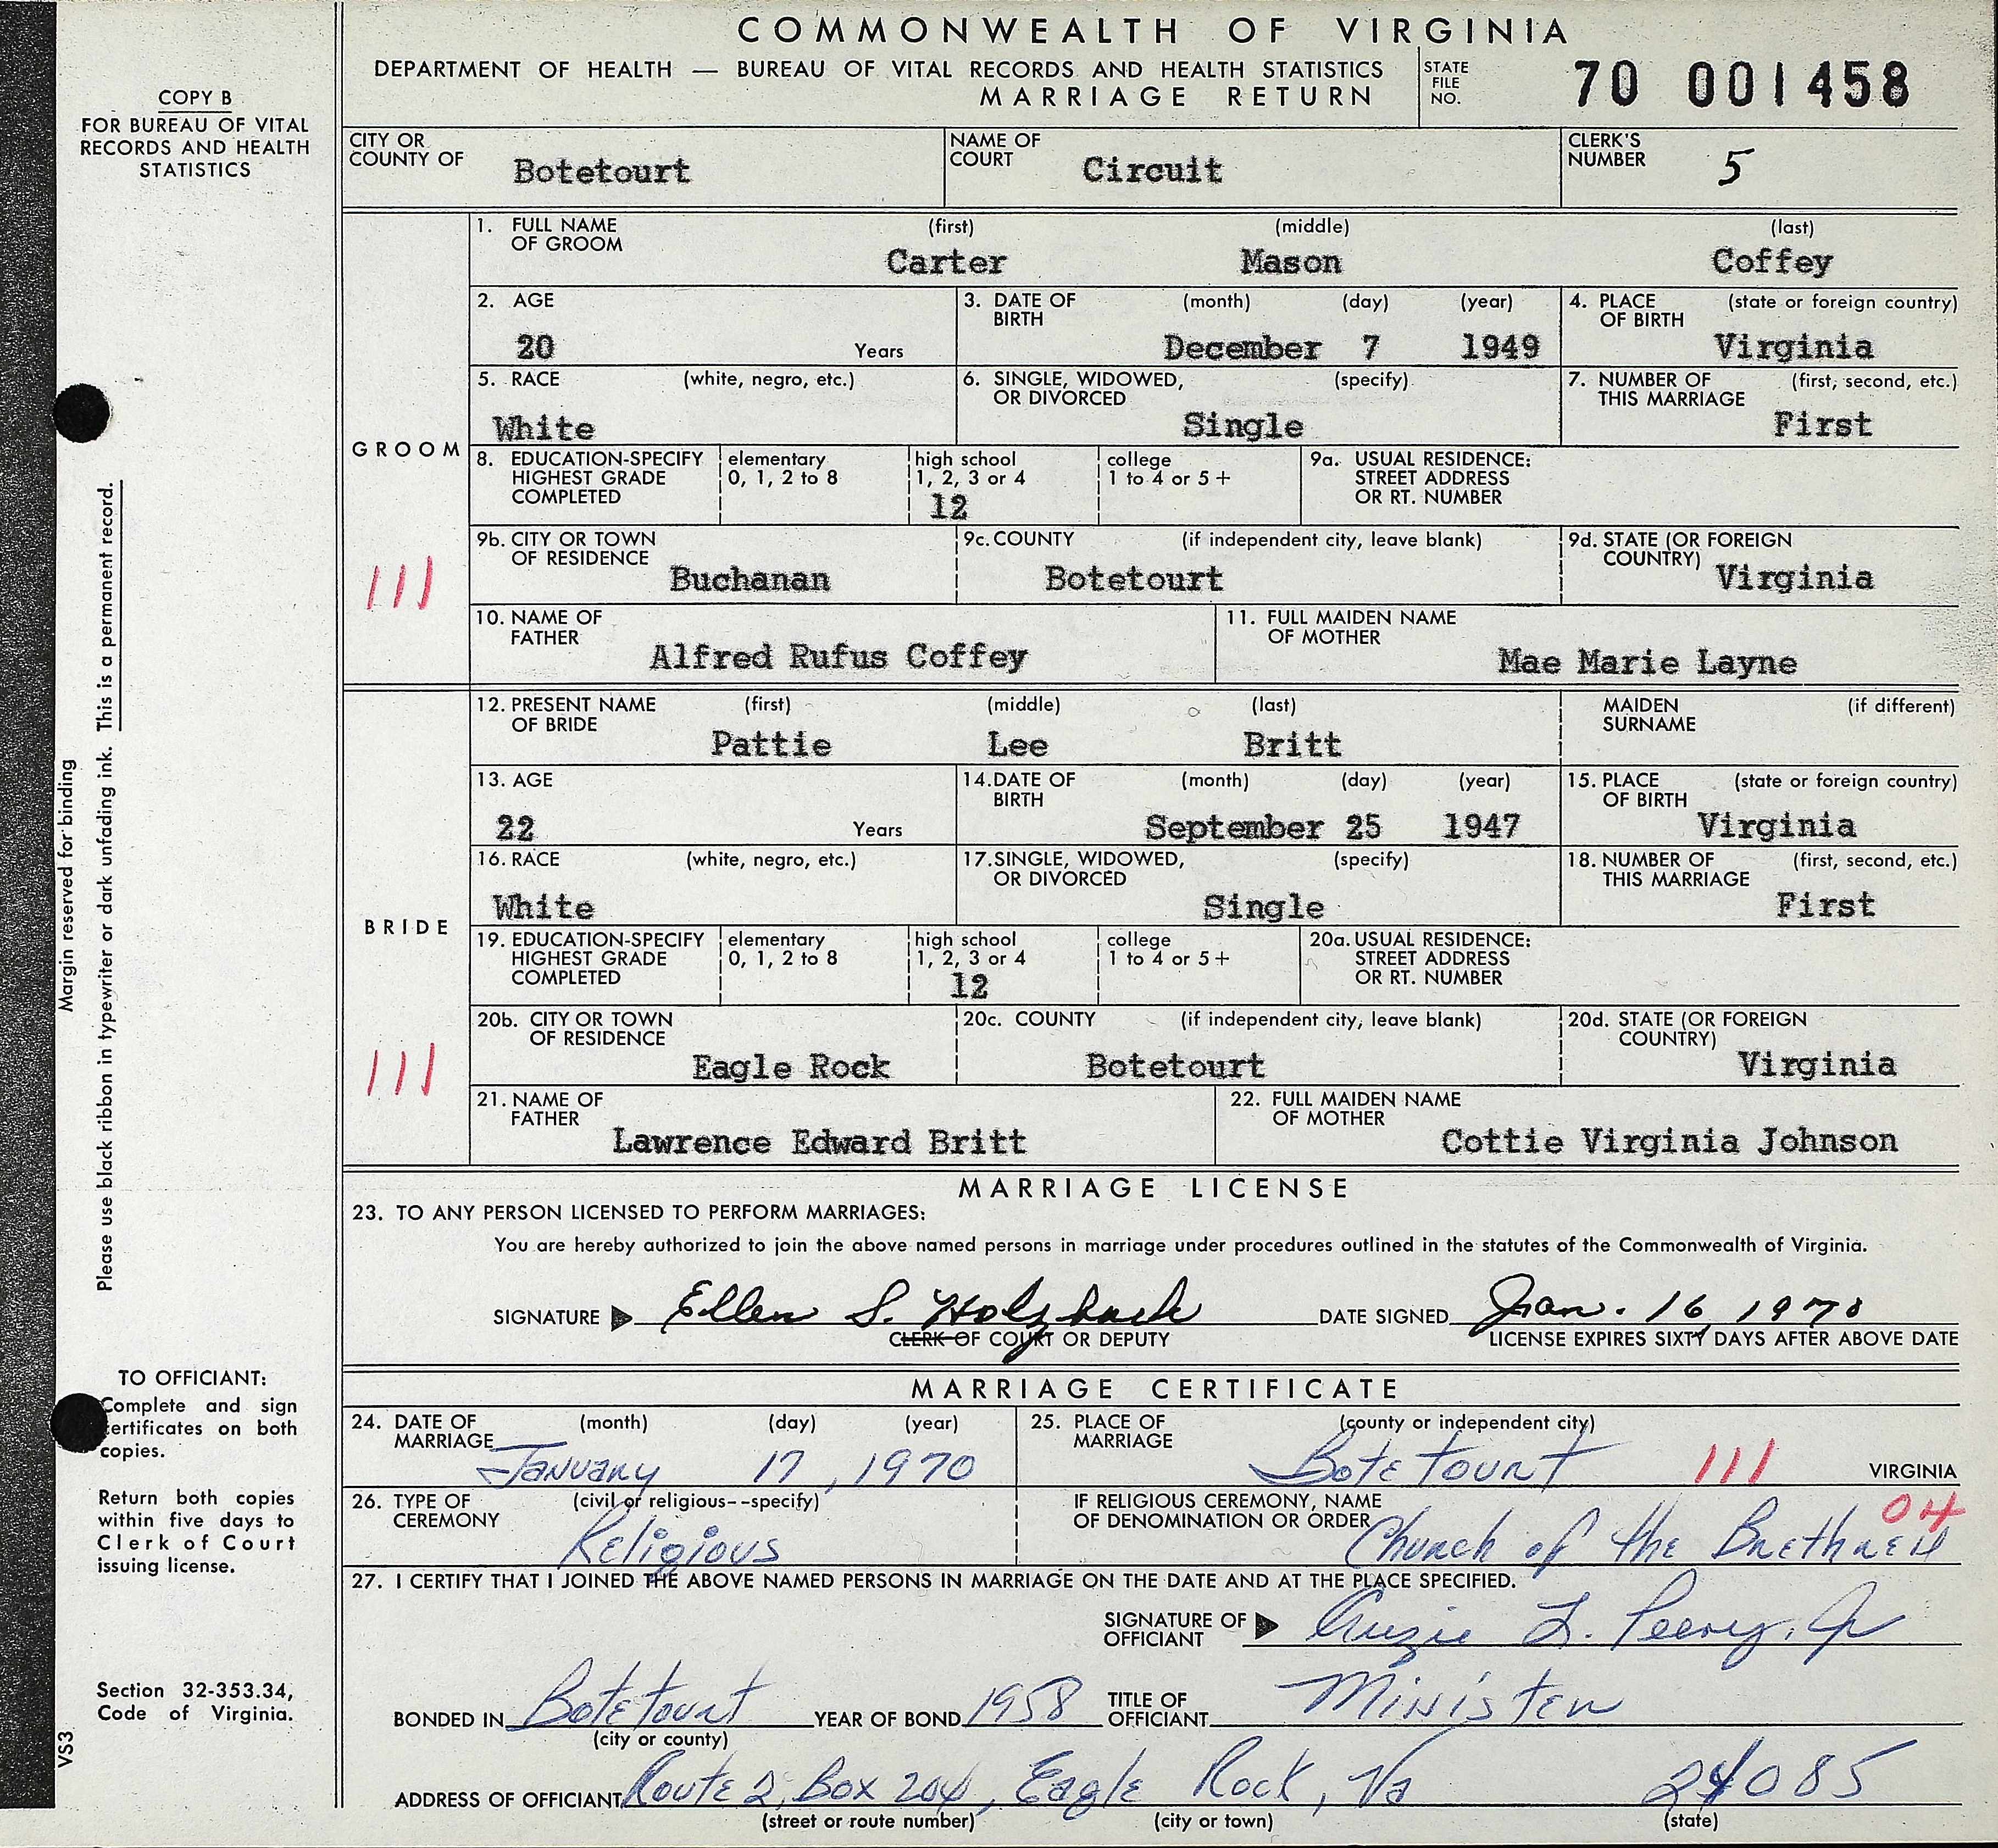 COMMONWEALTH OF VIRGINIA
DEPARTMENT OF HEALTH — BUREAU OF VITAL RECORDS AND HEALTH STATISTICS
MARRIAGE RETURN
STATE FILE NO. 70 001458
COPY B
FOR BUREAU OF VITAL
RECORDS AND HEALTH
STATISTICS
CITY OR COUNTY OF Botetourt NAME OF COURT Circuit CLERK'S NUMBER 5
GROOM
111
1. FULL NAME OF GROOM (first) Carter (middle) Mason (last) Coffey
2. AGE 20 Years 3. DATE OF BIRTH (month) (day) (year) December 7 1949 4. PLACE OF BIRTH (state or foreign country) Virginia
5. RACE (white, negro, etc.) White 6. SINGLE, WIDOWED, OR DIVORCED (specify) Single 7. NUMBER OF THIS MARRIAGE (first, second, etc.) First
8. EDUCATION-SPECIFY HIGHEST GRADE COMPLETED elementary 0, 1, 2 to 8 high school 1, 2, 3 or 4 12 college 1 to 4 or 5+ 9a. USUAL RESIDENCE: STREET ADDRESS OR RT. NUMBER
9b. CITY OR TOWN OF RESIDENCE Buchanan 9c. COUNTY (if independent city, leave blank) Botetourt 9d. STATE (OR FOREIGN COUNTRY) Virginia
10. NAME OF FATHER Alfred Rufus Coffey 11. FULL MAIDEN NAME OF MOTHER Mae Marie Layne
BRIDE
111
12. PRESENT NAME OF BRIDE (first) Pattie (middle) Lee (last) Britt MAIDEN SURNAME (if different)
13. AGE 22 Years 14. DATE OF BIRTH (month) (day) (year) September 25 1947 15. PLACE OF BIRTH (state or foreign country) Virginia
16. RACE (white, negro, etc.) White 17. SINGLE, WIDOWED, OR DIVORCED (specify) Single 18. NUMBER OF THIS MARRIAGE (first, second, etc.) First
19. EDUCATION-SPECIFY HIGHEST GRADE COMPLETED elementary 0, 1, 2 to 8 high school 1, 2, 3 or 4 12 college 1 to 4 or 5+ 20a. USUAL RESIDENCE: STREET ADDRESS OR RT. NUMBER
20b. CITY OR TOWN OF RESIDENCE Eagle Rock 20c. COUNTY (if independent city, leave blank) Botetourt 20d. STATE (OR FOREIGN COUNTRY) Virginia
21. NAME OF FATHER Lawrence Edward Britt 22. FULL MAIDEN NAME OF MOTHER Cottie Virginia Johnson
MARRIAGE LICENSE
23. TO ANY PERSON LICENSED TO PERFORM MARRIAGES:
You are hereby authorized to join the above named persons in marriage under procedures outlined in the statutes of the Commonwealth of Virginia.
SIGNATURE Ellen S. Holzbach DATE SIGNED Jan. 16, 1970
CLERK OF COURT OR DEPUTY LICENSE EXPIRES SIXTY DAYS AFTER ABOVE DATE
MARRIAGE CERTIFICATE
24. DATE OF MARRIAGE (month) (day) (year) January 17, 1970 25. PLACE OF MARRIAGE (county or independent city) Botetourt 111 VIRGINIA
26. TYPE OF CEREMONY (civil or religious--specify) Religious IF RELIGIOUS CEREMONY, NAME OF DENOMINATION OR ORDER Church of the Brethren 04
27. I CERTIFY THAT I JOINED THE ABOVE NAMED PERSONS IN MARRIAGE ON THE DATE AND AT THE PLACE SPECIFIED.
SIGNATURE OF OFFICIANT L. Peery, Jr
BONDED IN Botetourt (city or county) YEAR OF BOND 1958 TITLE OF OFFICIANT Minister
ADDRESS OF OFFICIANT Route 2, Box 204, Eagle Rock, Va 24085
(street or route number) (city or town) (state)
Margin reserved for binding
Please use black ribbon in typewriter or dark unfading ink. This is a permanent record.
TO OFFICIANT:
Complete and sign
certificates on both
copies.
Return both copies
within five days to
Clerk of Court
issuing license.
Section 32-353.34,
Code of Virginia.
VS3